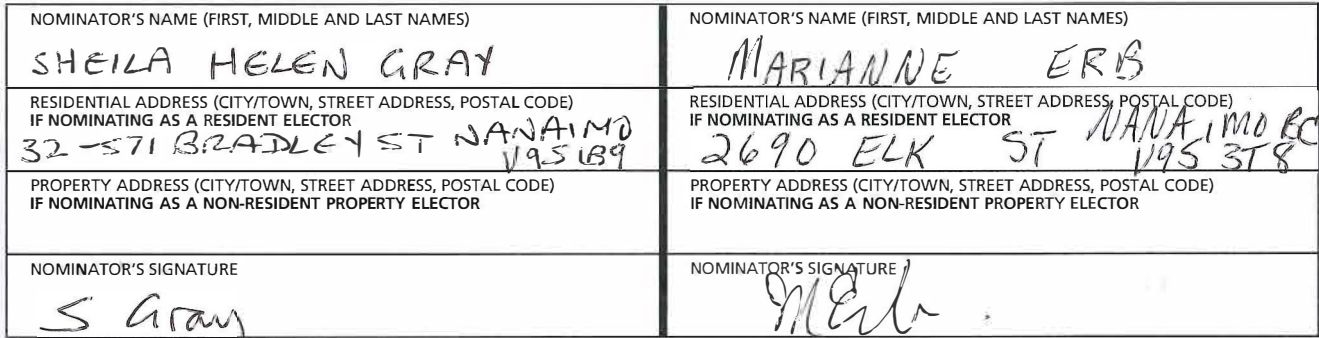 NOMINATOR'S NAME (FIRST, MIDDLE AND LAST NAMES)
SHEILA HELEN GRAY
RESIDENTIAL ADDRESS (CITY/TOWN, STREET ADDRESS, POSTAL CODE)
IF NOMINATING AS A RESIDENT ELECTOR
32-571 BRADLEY ST NANAIMO
V9S 1B9
PROPERTY ADDRESS (CITY/TOWN, STREET ADDRESS, POSTAL CODE)
IF NOMINATING AS A NON-RESIDENT PROPERTY ELECTOR
NOMINATOR'S SIGNATURE
S Gray
NOMINATOR'S NAME (FIRST, MIDDLE AND LAST NAMES)
MARIANNE ERB
RESIDENTIAL ADDRESS (CITY/TOWN, STREET ADDRESS, POSTAL CODE)
IF NOMINATING AS A RESIDENT ELECTOR
2690 ELK ST NANAIMO BC
V9S 3T8
PROPERTY ADDRESS (CITY/TOWN, STREET ADDRESS, POSTAL CODE)
IF NOMINATING AS A NON-RESIDENT PROPERTY ELECTOR
NOMINATOR'S SIGNATURE
MErb